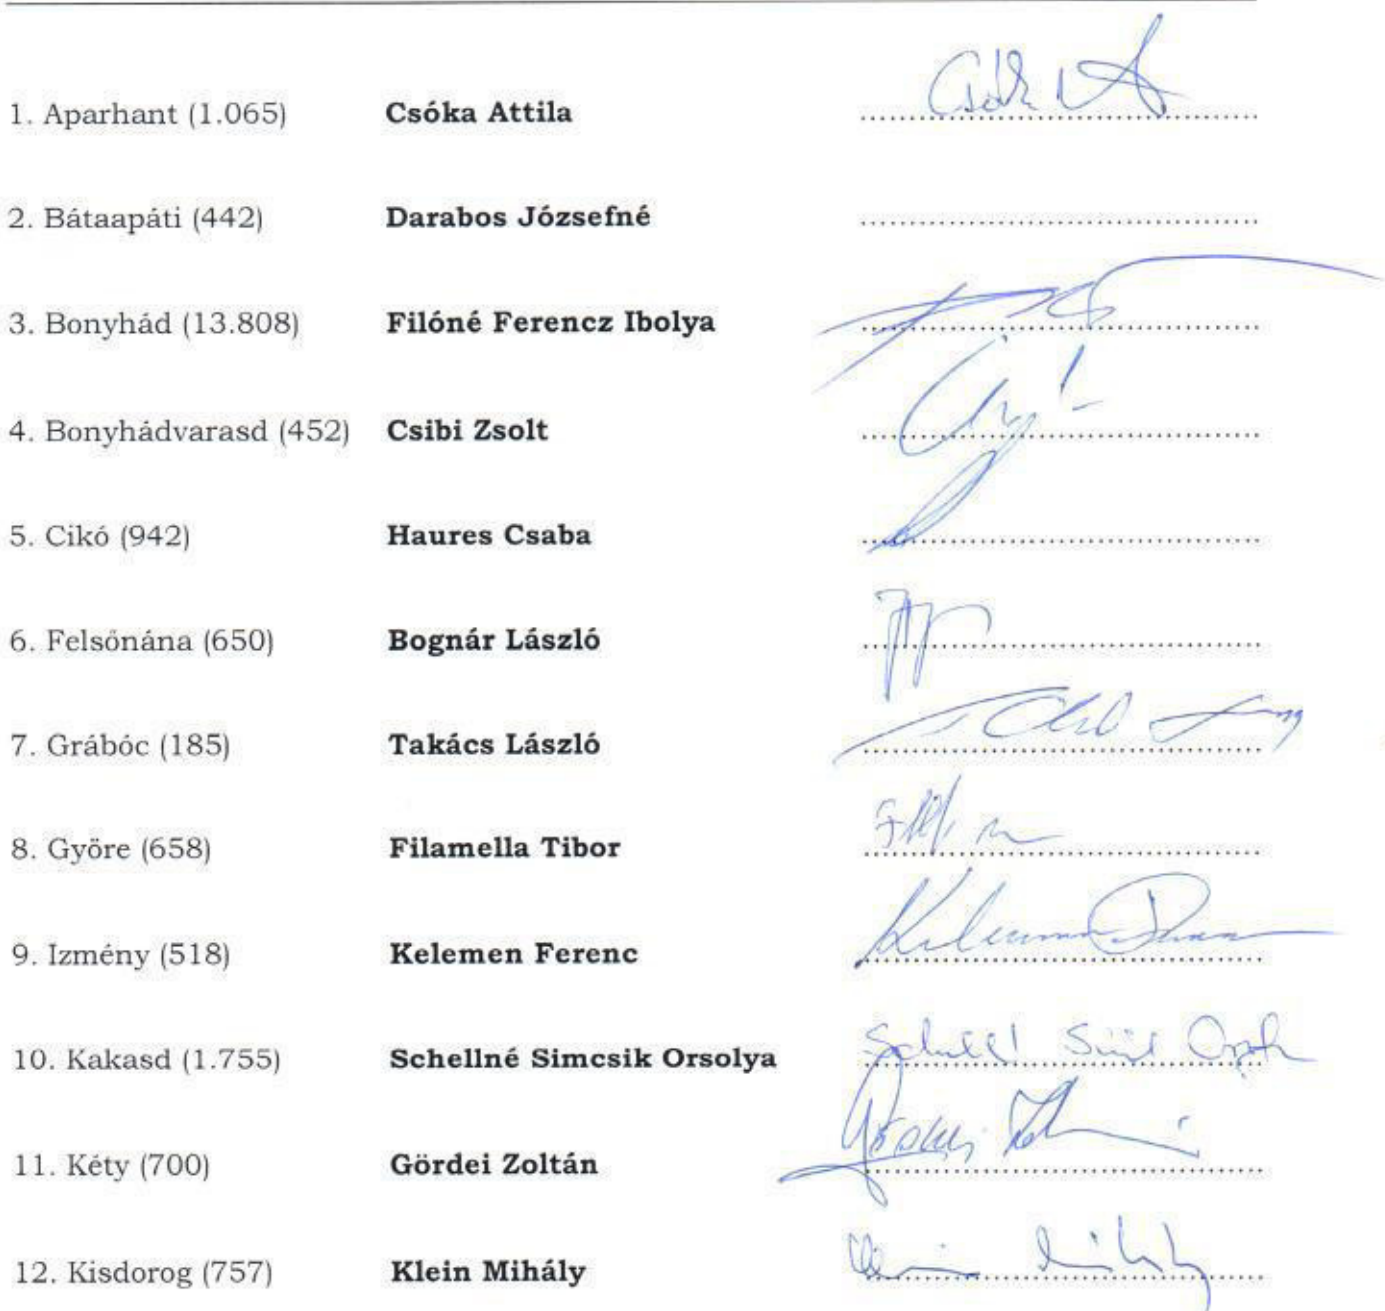 1. Aparhant (1.065) Csóka Attila
2. Bátaapáti (442) Darabos Józsefné
3. Bonyhád (13.808) Filóné Ferencz Ibolya
4. Bonyhádvarasd (452) Csibi Zsolt
5. Cikó (942) Haures Csaba
6. Felsőnána (650) Bognár László
7. Grábóc (185) Takács László
8. Györe (658) Filamella Tibor
9. Izmény (518) Kelemen Ferenc
10. Kakasd (1.755) Schellné Simcsik Orsolya
11. Kéty (700) Gördei Zoltán
12. Kisdorog (757) Klein Mihály